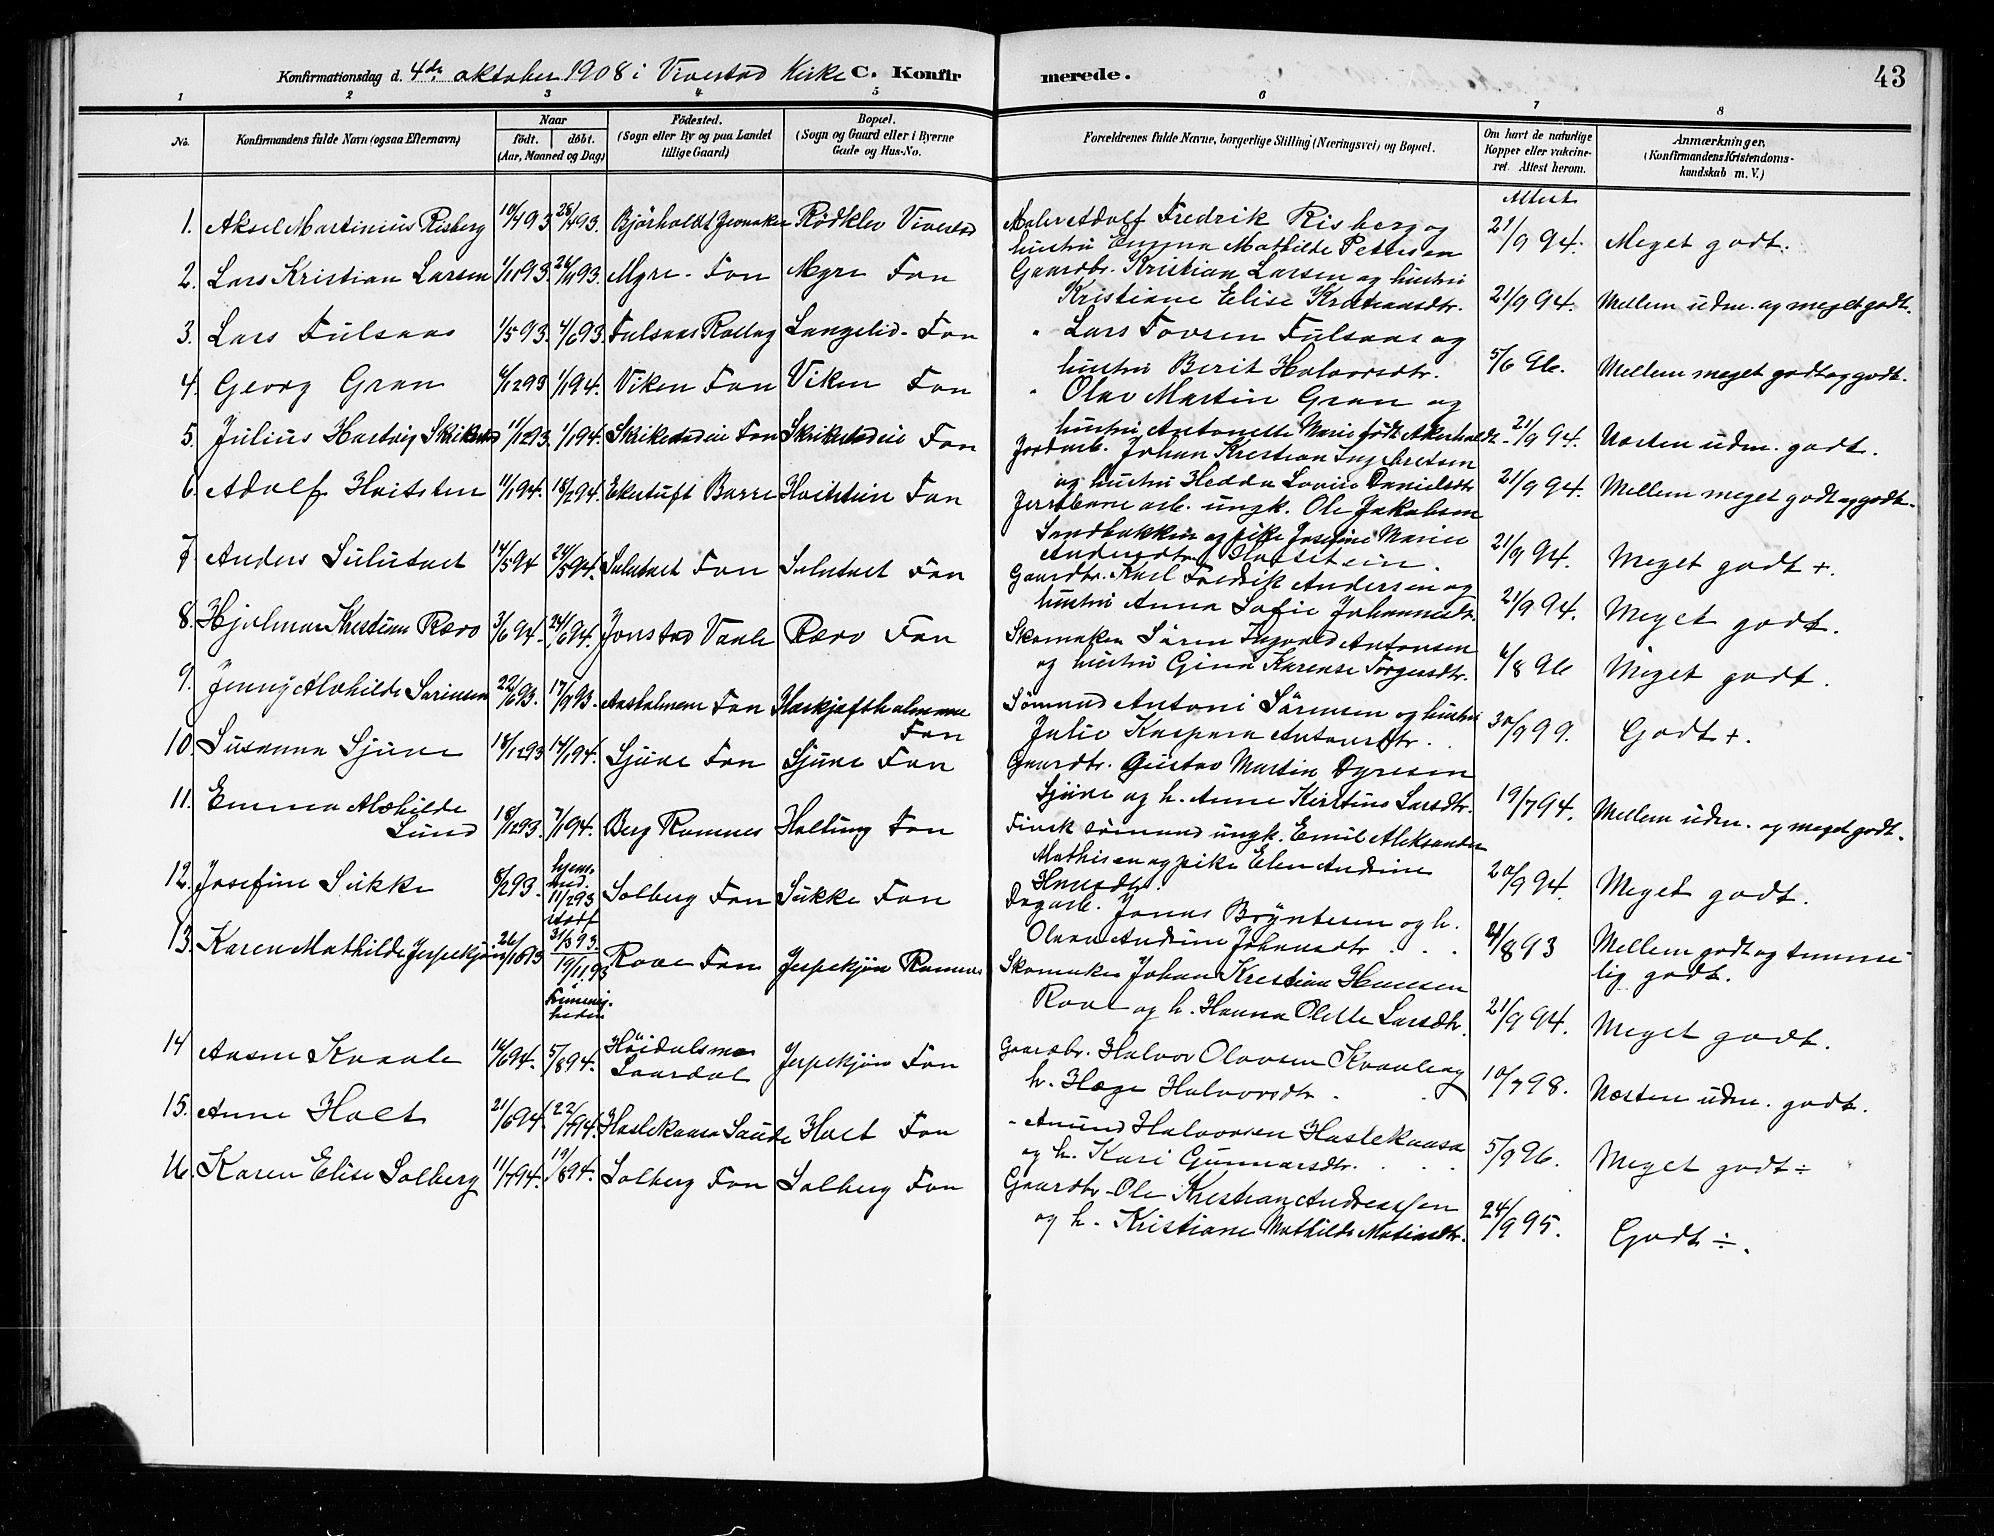 Konfirmationsdag d. 4de oktober 1908 i Vivestad Kirke C. Konfirmerede. 43
1 2 3 4 5 6 7 8
No. Konfirmandens fulde Navn (ogsaa Efternavn) Naar født. døbt. (Aar, Maaned og Dag) Fødested. (Sogn eller By og paa Landet tillige Gaard) Bopæl. (Sogn og Gaard eller i Byerne Gade og Hus-No. Forældrenes fulde Navne, borgerlige Stilling (Næringsvei) og Bopæl. Om havt de naturlige Kopper eller vakcineret. Attest herom. Anmærkninger, (Konfirmandens Kristendomskundskab m. V.)
Attest
1. Aksel Martinius Risberg 10/4 93 Bjørholdt Jevnaker Rødklev Vivestad Maler Adolf Fredrik Risberg og
hustru Emma Mathilde Pettersen 21/9 94. Meget godt.
2. Lars Kristian Larsen 1/11 93 26/11 93. Myre Fon Myre Fon Gaardbr. Kristian Larsen og hustru
Kristiane Elise 21/9 94. Mellem udm. og meget godt.
3. Lars Fulsaas 1/5 93. 4/6 93. Fulsaas Rollag Langelid Fon " Lars Tovsen Fulsaas og
hustru Berit Halvorsdtr. 5/6 96. Mellem meget godt og godt.
4. Georg Gran 6/12 93 1/1 94. Viken Fon Viken Fon " Olav Martin Gran og
hustru Antonette Marie født Akerholdt 21/9 94. Næsten udm. godt.
5. Julius Hartvig Skrikestad 11/12 93. 1/1 94. Skrikestadeie Fon Skrikestadeie Fon Jordarb. Johan Kristian Ingebretsen
og hustru Hedda Lovise Danielsdtr 21/9 94. Mellem meget godt og godt.
6. Adolf Hvitsten 11/1 94. 18/2 94. Ekertuft Borre Hvitstein Fon Jernbane arb. ungk. Ole Jakobsen
Sandbakken og pike Josefine Marie
Andersdtr. 21/9 94. Meget godt +.
7 Anders Sulutvet 14/5 94 24/5 94. Sulutvet Fon Sulutvet Fon Gaardbr. Karl Fredrik Andersen og
hustru Anna Sofie 21/9 94. Meget godt.
8. Hjalmar Kristian Rævo 3/6 94. 24/6 94. Jonstad Vaale Rævo Fon Skomaker Søren Ingvald Antonsen
og hustru Gina Karense Torgersdtr. 6/8 96 Meget godt.
9. Jenny Alvhilde Sørinsen 22/6 93. 17/9 93. Aasholmene Fon Fon Sømand Antoni Sørensen og hustru
Julie Kaspara Antonsdtr. 30/9 99. Godt +.
10. Susanna Sjuve 18/12 93 14/1 94. Sjuve Fon Sjuve Fon Gaardbr. Gustav Martin Dyresen
Sjuve og h. Anne Kirstine Larsdtr. 19/7 94. Mellem udm. og meget godt.
11. Emma Alvhilde
Lund 18/12 93. 7/1 94. Berg Ramnes Haltung Fon Finsk sømand ungk. Emil Aleksander
Mathisen og pike Elen Andrine
20/9 94. Meget godt.
12. Josefine Sukke 8/2 93. hjemmed. 11/2 93 stadf 31/3 93. Solberg Fon Sukke Fon Dagarb. Jonas Bryntesen og h.
Olava Andrine Johansdtr. 21/8 93 Mellem godt og temmelig godt.
13. Karen Mathilde Jerpekjøn 26/10 93 19/11 93 i Frimenigheden Roae Fon Jerpekjøn Ramnes Skomaker Johan Kristian Hansen
Roae og h. Hanna Olette Larsdtr. 21/9 94. Meget godt.
14 Aasne Kvaale 16/6 94. 5/8 94. Høidalsmo
Laardal Jerpekjøn Fon Gaardbr. Halvor Olavsen Kvaale og
h. Hæge Halvorsdtr. 10/7 98. Næsten udm. godt.
15. Anne Holt 21/6 94. 22/7 94. Haslekaasa Saude Holt Fon " Amund Halvorsen Haslekaasa
og h. Kari Gunnarsdtr. 5/9 96. Meget godt ÷
16. Karen Elise Solberg 11/7 94. 19/8 94. Solberg Fon Solberg Fon Gaardbr. Ole Kristian Andreassen
og h. Kristiane Mathilde 24/9 95. Godt ÷.